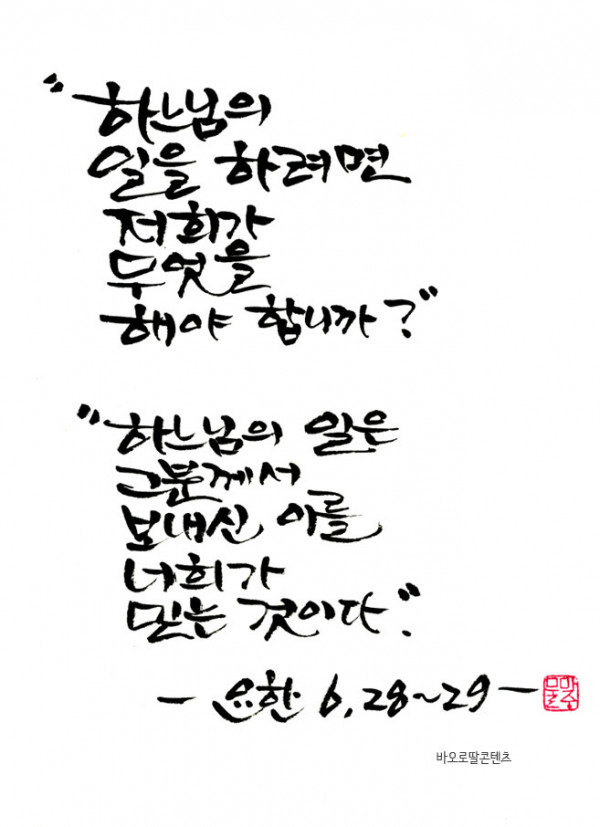 "하느님의
일을 하려면
저희가
무엇을
해야 합니까?"
"하느님의 일은
그분께서
보내신 이를
너희가
믿는 것이다."
- 요한 6, 28~29 -
바오로딸콘텐츠